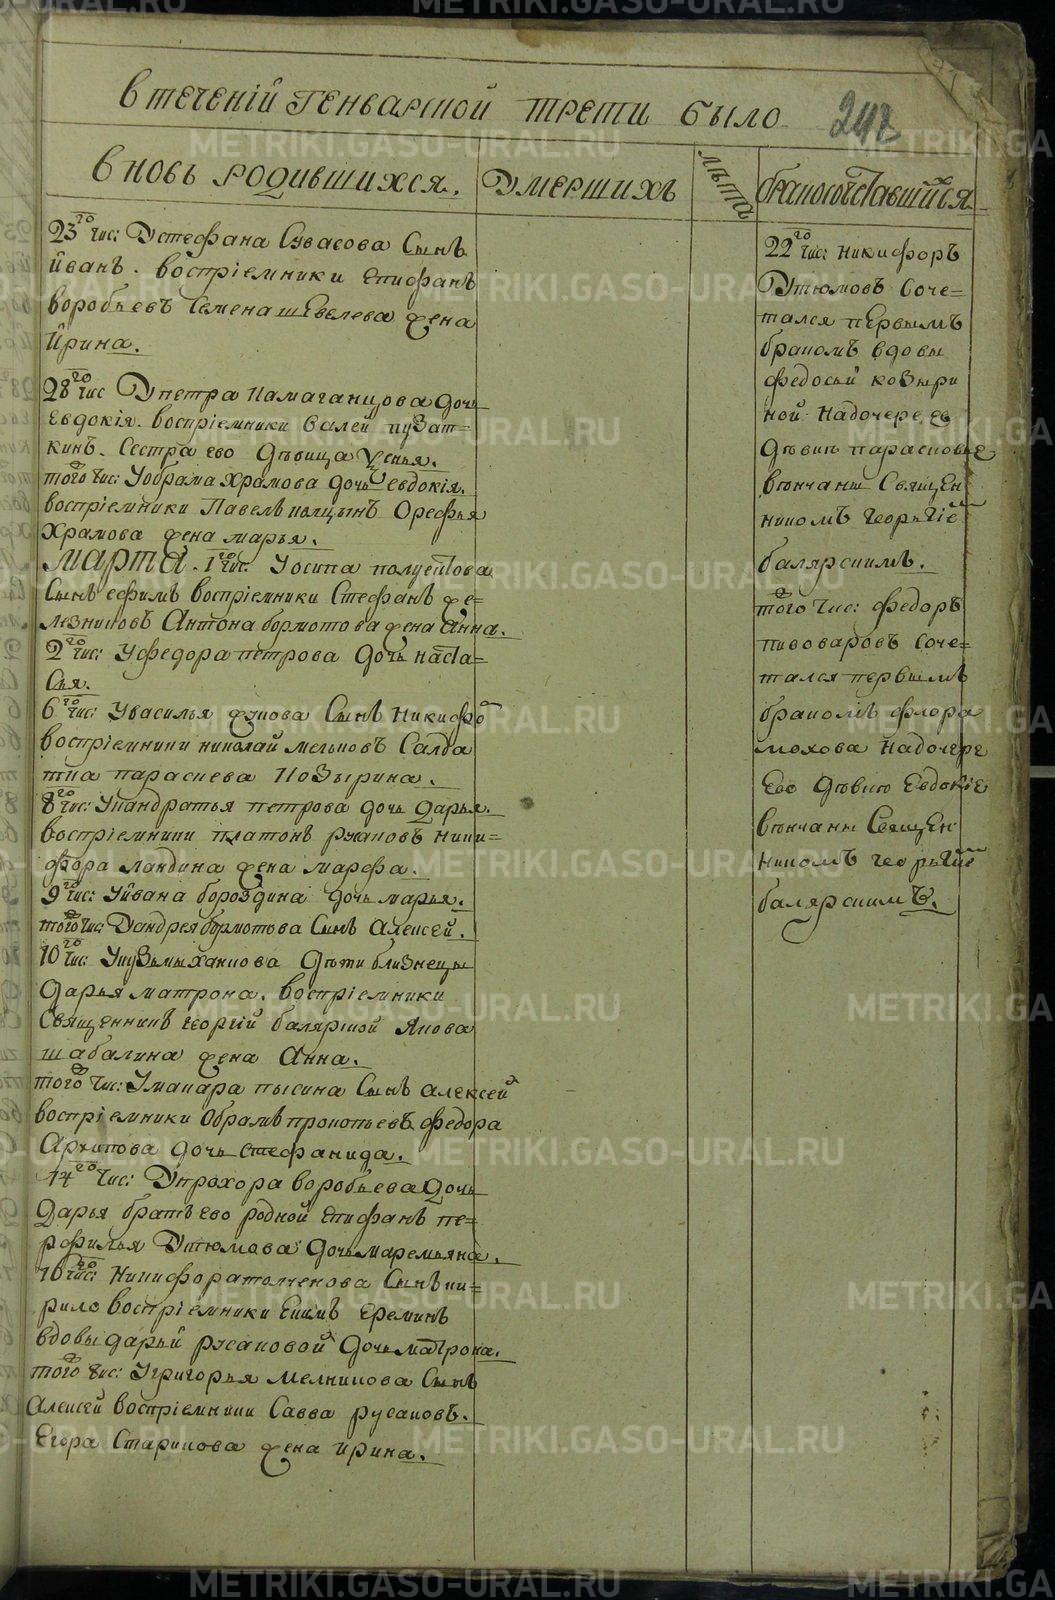 В теченій Генварской трети было
242
Вновь родившихся.
Умершихъ
лѣта
бракосочетавшихся
23го чис: У стефана Сувасова Сынъ
йванъ. востріемники епифанъ
воробьевъ Семена шевелева жена
йрина.
28го чис У петра Камаганцова дочь
Евдокія. воспріемники Валей пузат=
кинъ. Сестра ево Дѣвица Уенья.
того чис: У обрама храмова дочь евдокія.
воспріемники Павелъ Орефья
храмова жена марья.
марта. 1го чис. У осипа полуектова
Сынъ ефимъ воспріемники Стефанъ же=
лезниковъ Антона бормотова жена Анна.
2го чис: У федора петрова дочь наста=
сья.
6го чис: У василья жукова Сынъ Никифо
воспріемники николай мелковъ Салда
тка параскева Козырина.
8го чис: У кандратья петрова дочь дарья.
воспріемники платонъ рукановъ ники=
фора ландина жена марфа.
9го чис: У йвана бороздина дочь марья.
того чис: У андрея бормотова Сынъ Алексей.
10го чис: У кузьмы ханкова Дѣти близнецы
дарья матрона. воспріемники
Священникъ георгій балярской Якова
шабалина жена Анна.
того чис: У макара пысина Сынъ алексей
воспріемники обрамъ прокопьевъ федора
Архипова дочь стефанида.
14го чис: У прохора воробьева дочь
Дарья братъ ево родной епифанъ пе=
рфилья Утюмова дочь маремьяна.
16го чис: Никифора толченова Сынъ ки=
рило воспріемники екимъ еремин
вдовы дарьи русановой дочь матрона.
того чис: У григорья мелникова Сынъ
Алексей воспріемники Савва русаковъ.
Егора Старикова жена ирина.
22го чис: никифоръ
Утюмовъ Соче=
тался первымъ
бракомъ вдовы
федосьи козыри
ной Надочере ее
Дѣвице парасковье
вѣнчаны Священ
никомъ георьгіе
балярскимъ.
того чис: федоръ
пивоваровъ соче=
тался первымъ
бракомъ флора
мохова Надочере
Ево Дѣвке Евдокіе
вѣнчаны Священ
никомъ георьгіе
балярскимъ.
METRIKI.GASO-URAL.RU